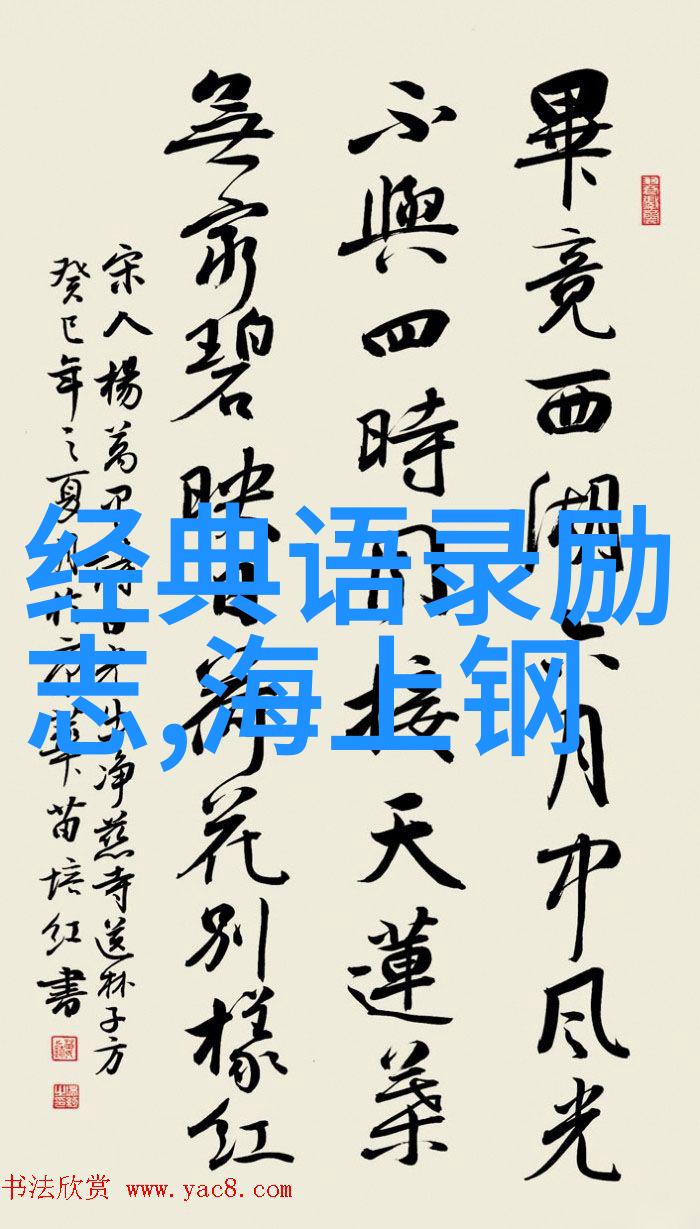 畢竟西湖六月中風光
不與四時同接天蓮葉
無窮碧映日荷花別樣紅
宋人楊萬里詩曉出净慈寺送林子方
癸巳年之夏月於
苗培红書
经典语录励
志,海上钢
书法欣赏 www.yac8.com